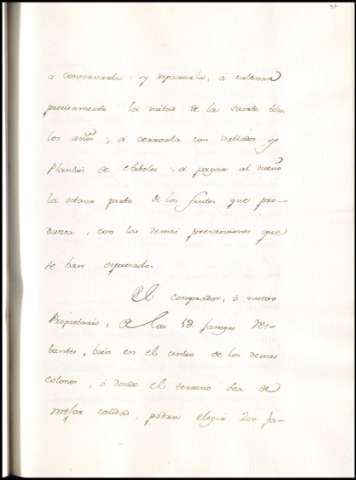 á conservarla y repararla, á cultivar
precisamente la mitad de la suerte todos
los años, á cercarla con vallados y
Plantíos de Arboles, á pagar al dueño
la octava parte de los frutos que pro-
duzca, con las demas prevenciones que
se han expresado.
El comprador, ó nuevo
Propietario, á las 50 fanegas
bantes, bien en el centro de los demas
colonos, ó donde el terreno sea de
mejor calidad, podrá elegir 200 fa-